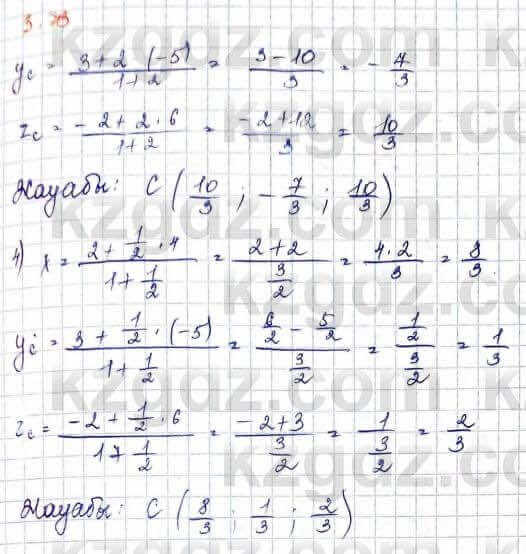 3.73
y_c = \frac{3+2 \cdot (-5)}{1+2} = \frac{3-10}{3} = -\frac{7}{3}
z_c = \frac{-2+2 \cdot 6}{1+2} = \frac{-2+12}{3} = \frac{10}{3}
Жауабы: C (\frac{10}{3}; -\frac{7}{3}; \frac{10}{3})
4) x = \frac{2+\frac{1}{2} \cdot 4}{1+\frac{1}{2}} = \frac{2+2}{\frac{3}{2}} = \frac{4 \cdot 2}{3} = \frac{8}{3}.
y_c = \frac{3+\frac{1}{2} \cdot (-5)}{1+\frac{1}{2}} = \frac{\frac{6}{2}-\frac{5}{2}}{\frac{3}{2}} = \frac{\frac{1}{2}}{\frac{3}{2}} = \frac{1}{3}
z_c = \frac{-2+\frac{1}{2} \cdot 6}{1+\frac{1}{2}} = \frac{-2+3}{\frac{3}{2}} = \frac{1}{\frac{3}{2}} = \frac{2}{3}
Жауабы: C (\frac{8}{3}; \frac{1}{3}; \frac{2}{3})